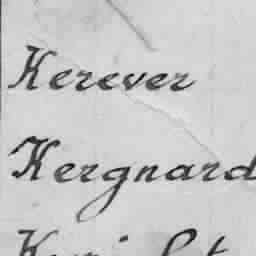 Kerever
Kergnard